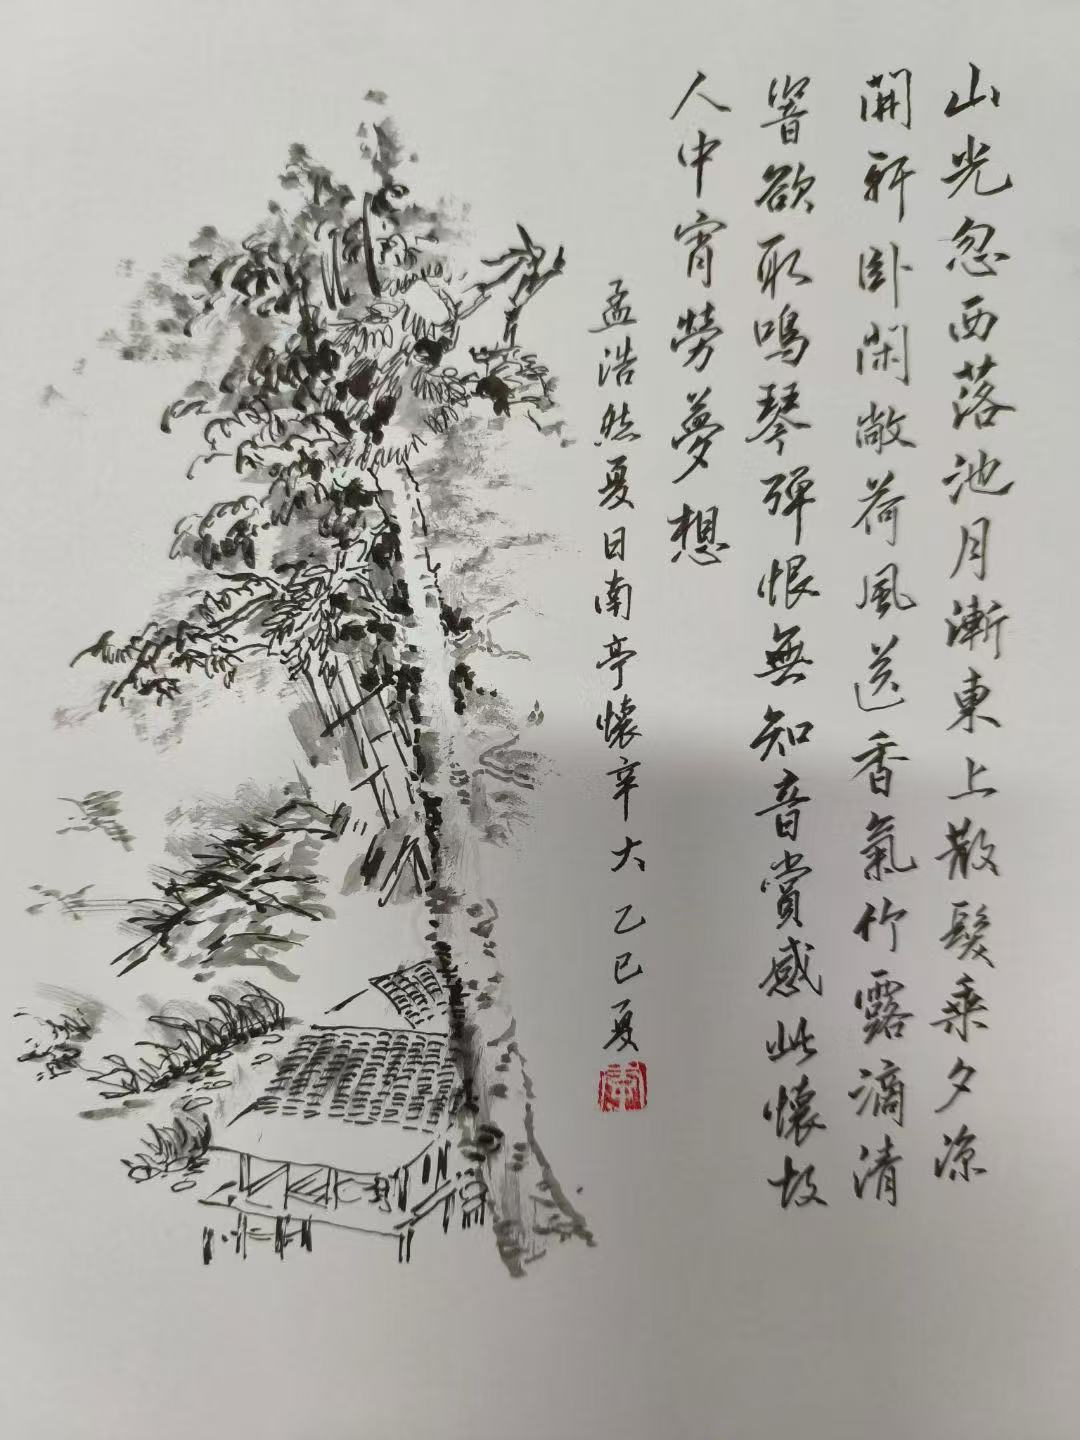 山光忽西落池月漸東上散髮乘夕涼
開軒卧閑敞荷風送香氣竹露滴清
響欲取鳴琴彈恨無知音賞感此懷故
人中宵勞夢想
孟浩然夏日南亭懷辛大 乙巳夏